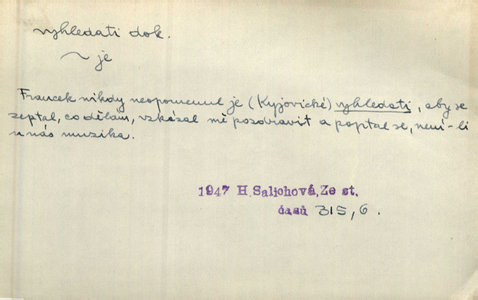 vyhledati dok.
~ je
Francek nikdy neopomenul je (Kyjovické) vyhledati, aby se
zeptal, co dělám, vzkázal mi pozdravit a poptal se, není-li
u nás muzika.
1947 H. Salichová, Ze st.
časů 315, 6.